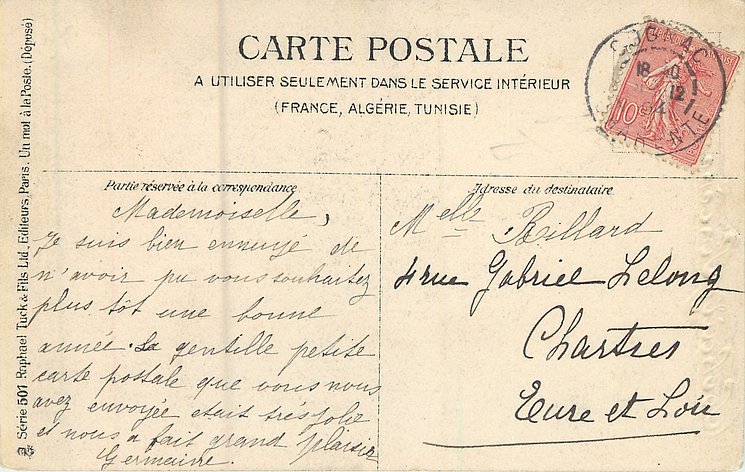 CARTE POSTALE
A UTILISER SEULEMENT DANS LE SERVICE INTÉRIEUR
(FRANCE, ALGÉRIE, TUNISIE)
COGNAC
CHARENTE
10c
Partie réservée à la correspondance
Mademoiselle,
Je suis bien ennuyé de
n'avoir pu vous souhaitez
plus tôt une bonne
année. La gentille petite
carte postale que vous nous
avez envoyée était très jolie
et nous a fait grand plaisir
Germaine.
Adresse du destinataire
Melle Billard
4 rue Gabriel Lelong
Chartres
Eure et Loir
Série 501 Raphael Tuck & Fils Ltd. Editeurs, Paris. Un mot à la Poste. (Déposé)